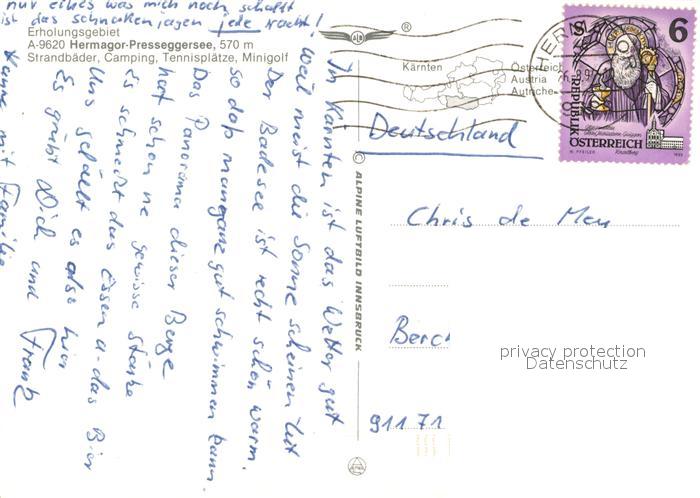 nur eines was mich noch schafft
ist das schnakenjagen jede Nacht!
Erholungsgebiet
A-9620 Hermagor-Presseggersee, 570 m
Strandbäder, Camping, Tennisplätze, Minigolf
In Kärnten ist das Wetter gut
weil meist die Sonne scheinen tut
Der Badesee ist recht schön warm.
so daß man ganz gut schwimmen kann.
Das Panorama dieser Berge
hat schon ne gewisse Stärke
Es schmeckt das Essen u. das Bier
Uns gefällt es also hier
Es grüßt Dich und
Frank
mit Familie
®
Kärnten
Österreich
Austria
Autriche
HERM
6
S
REPUBLIK
ÖSTERREICH
Deutschland
© ALPINE LUFTBILD INNSBRUCK
Chris de Mey
Berc
privacy protection
Datenschutz
91171